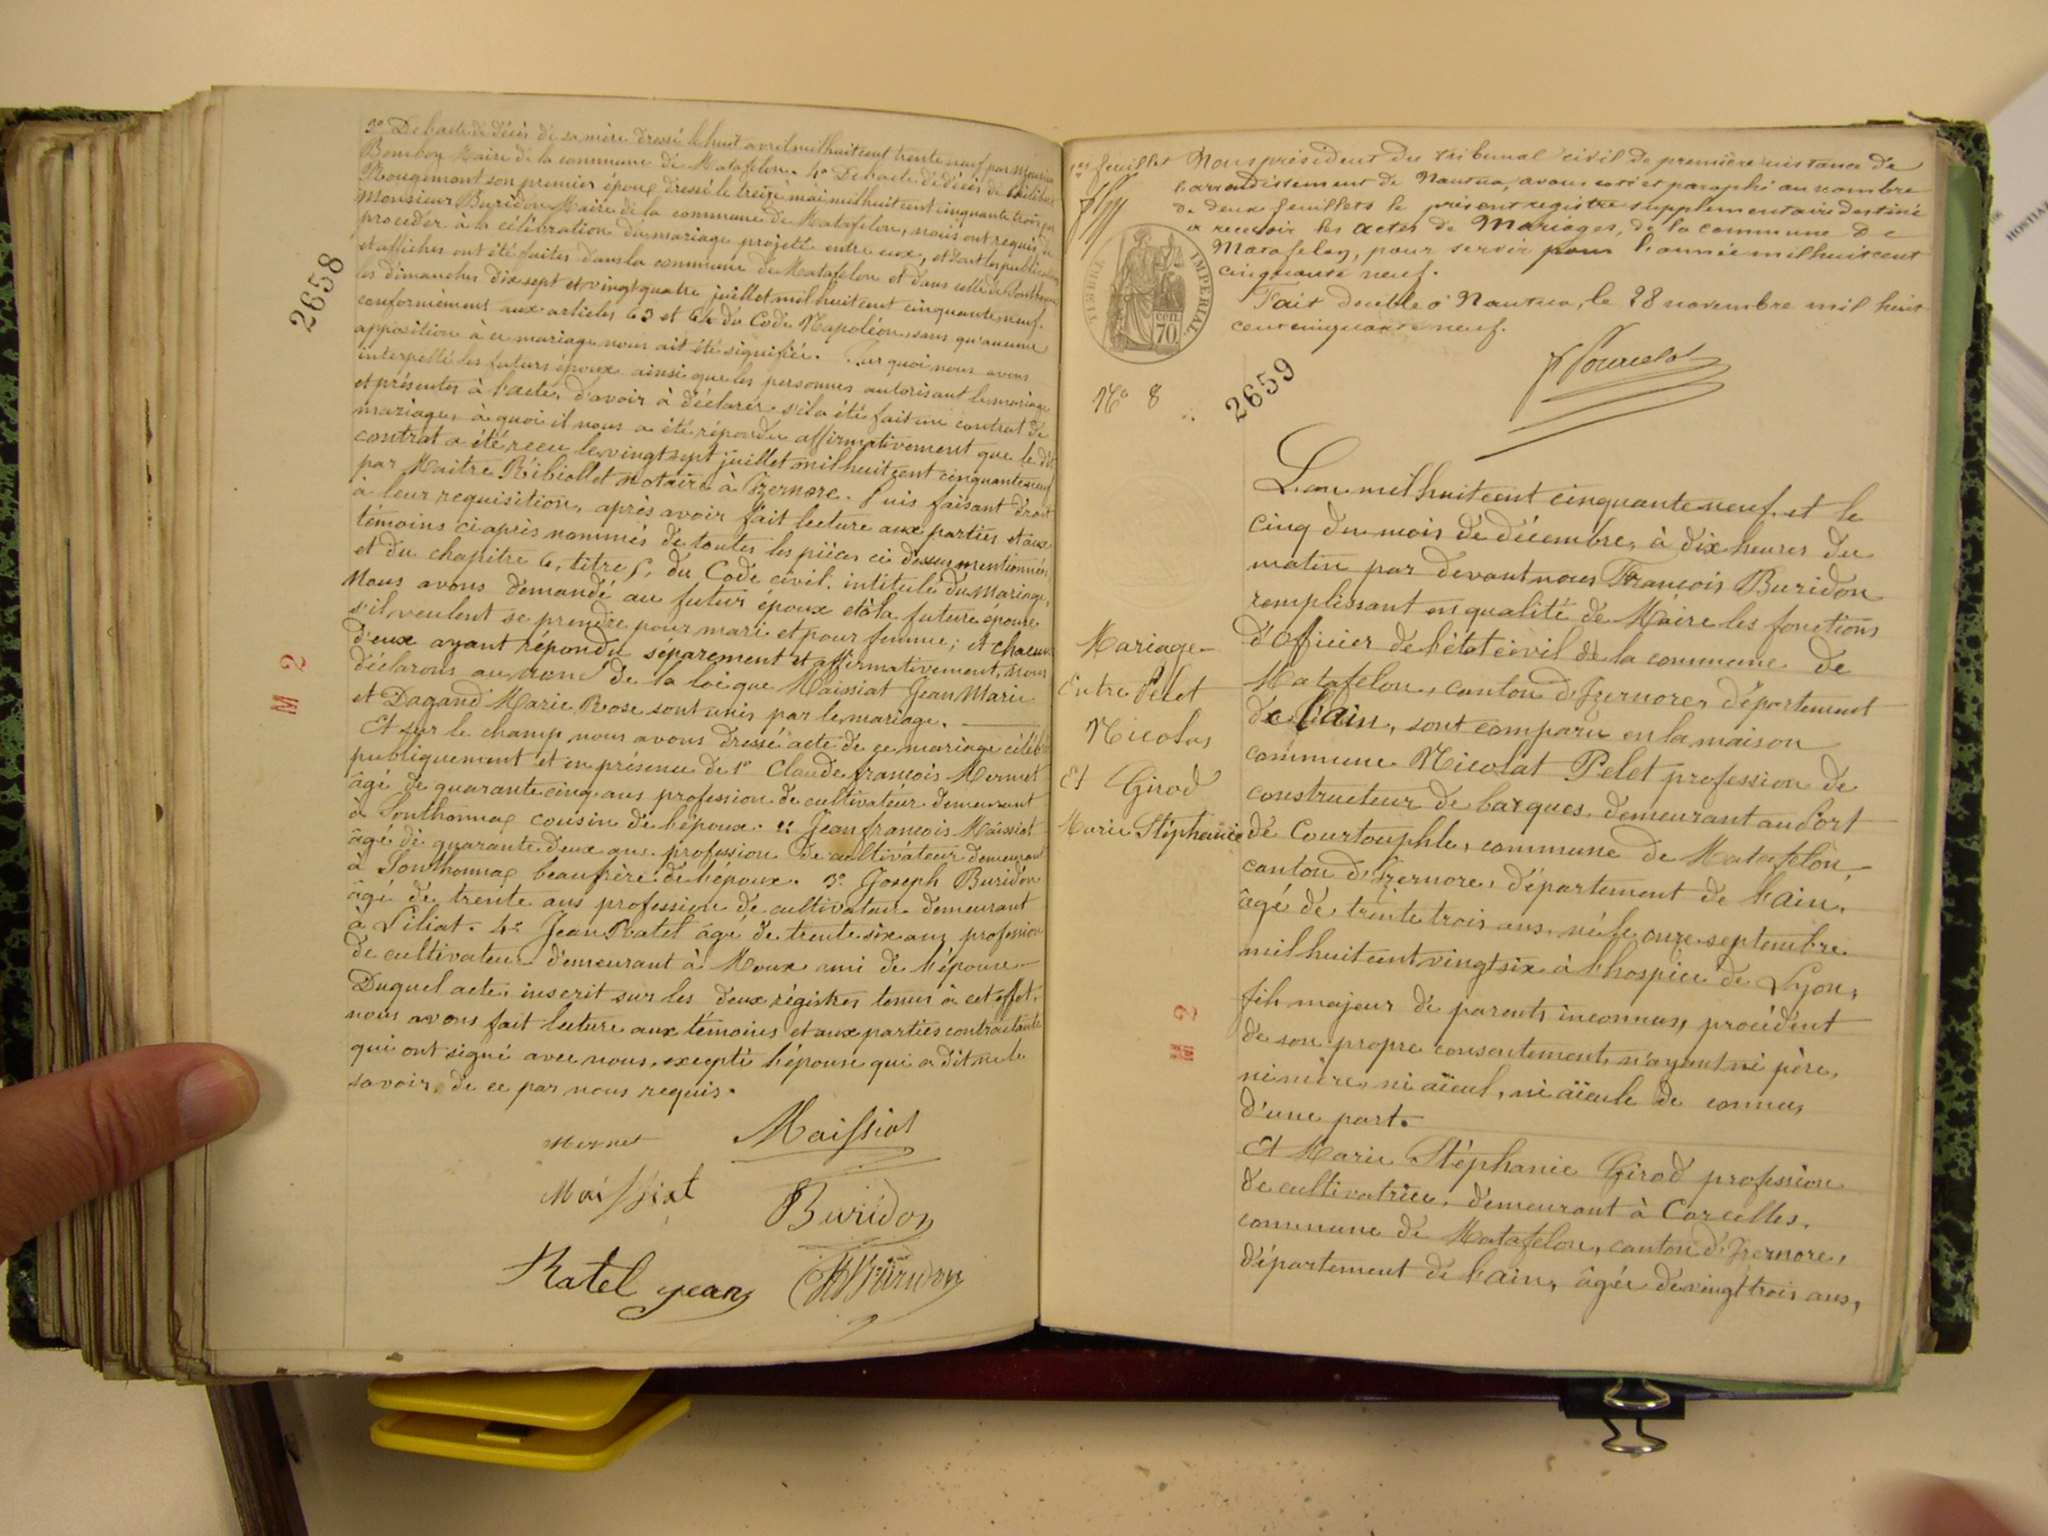 2658
3º De l'acte de décès de sa mère dressé le huit avril mil huit cent trente neuf par Monsieur
Bomboy Maire de la commune de Matafelon. 4º De l'acte de décès de
Rougemont son premier époux dressé le treize mai mil huit cent cinquante trois par
Monsieur Buridon Maire de la commune de Matafelon, nous ont requis de
procéder à la célébration du mariage projeté entre eux, et dont les publications
et affiches ont été faites dans la commune de Matafelon et dans celle de Sonthonnax
les dimanches dix sept et vingt quatre juillet mil huit cent cinquante neuf.
conformément aux articles 63 et 64 du Code Napoléon, sans qu'aucune
opposition à ce mariage nous ait été signifiée. Sur quoi nous avons
interpellé les futurs époux ainsi que les personnes autorisant le mariage
et présentes à l'acte, d'avoir à déclarer s'il a été fait un contrat de
mariage, à quoi il nous a été répondu affirmativement que le dit
contrat a été reçu le vingt sept juillet mil huit cent cinquante neuf
par Maitre Ribiollet notaire à Izernore. Puis faisant droit
à leur requisition, après avoir fait lecture aux parties et aux
témoins ci après nommés de toutes les pièces ci dessus mentionnées
et du chapitre 6, titre 5, du Code civil, intitulé du Mariage,
Nous avons demandé au futur époux et à la future épouse
s'il veulent se prendre pour mari et pour femme; et chacun
d'eux ayant répondu séparement et affirmativement, nous
déclarons au nom de la loi que Maissiat Jean Marie
et Dagand Marie Rose sont unis par le mariage.
Et sur le champ nous avons dressé acte de ce mariage célébré
publiquement et en présence de 1º Claude françois Mermet
âgé de quarante cinq ans profession de cultivateur demeurant
à Sonthonnax cousin de l'époux. 2º Jean françois Maissiat
âgé de quarante deux ans profession de cultivateur demeurant
à Sonthonnax beaufrère de l'époux. 3º Joseph Buridon
âgé de trente ans profession de cultivateur demeurant
à Siliat. 4º Jean Ratel âgé de trente six ans profession
de cultivateur demeurant à Moux ami de l'épouse
Duquel acte, inscrit sur les deux régistres tenus à cet effet,
nous avons fait lecture aux témoins et aux parties contractante
qui ont signé avec nous, excepté l'épouse qui a dit ne le
savoir, de ce par nous requis.
Mermet Maissiat
Maissiat Buridon
Ratel jean Buridon
M 2
1er feuillet Nous président du tribunal civil de première instance de
l'arrondissement de Nantua, avons coté et paraphé au nombre
de deux feuillets le présent registre supplémentaire destiné
à recevoir les actes de Mariages, de la commune de
Matafelon, pour servir pour l'année mil huit cent
cinquante neuf.
Fait double à Nantua, le 28 novembre mil huit
cent cinquante neuf.
TIMBRE IMPÉRIAL
70 cen.
Nº 8
2659
L'an mil huit cent cinquante neuf et le
cinq du mois de décembre, à dix heures du
matin par devant nous François Buridon
remplissant en qualité de Maire les fonctions
d'officier de l'état civil de la commune de
Matafelon, canton d'Izernore, département
de l'ain, sont comparu en la maison
commune Nicolat Pelet profession de
constructeur de barques demeurant au Port
de Courtouphle, commune de Matafelon,
canton d'Izernore, département de l'ain,
âgé de trente trois ans, né le onze septembre
mil huit cent vingt six à l'hospice de Lyon,
fils majeur de parents inconnus, procédent
de son propre consentement, n'ayant ni père,
ni mère, ni aïeul, ni aïeule de connus,
d'une part.
Et Marie Stéphanie Girod profession
de cultivatrice, demeurant à Corcelles,
commune de Matafelon, canton d'Izernore,
département de l'ain, âgée de vingt trois ans,
Mariage
Entre Pelet
Nicolas
Et Girod
Marie Stéphanie
M 2